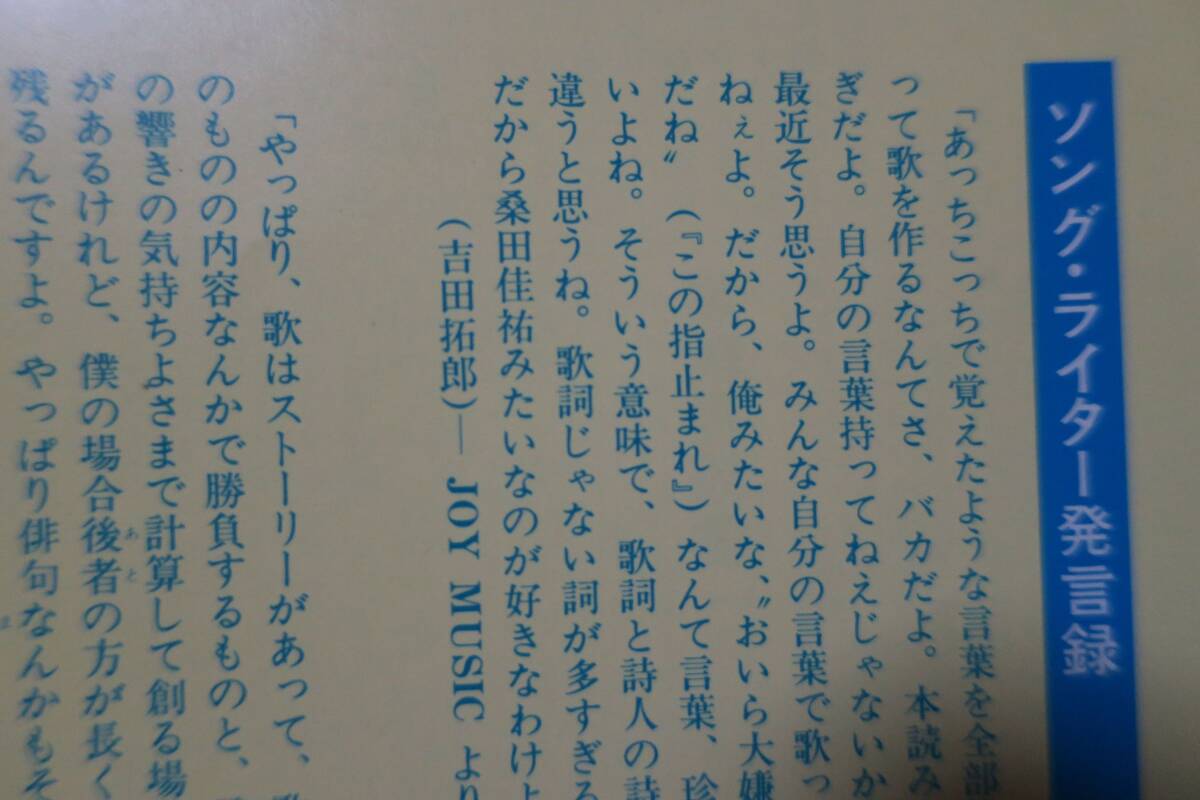 ソング・ライター発言録
「あっちこっちで覚えたような言葉を全部
って歌を作るなんてさ、バカだよ。本読み
ぎだよ。自分の言葉持ってねえじゃないか
最近そう思うよ。みんな自分の言葉で歌っ
ねぇよ。だから、俺みたいな、〝おいら大嫌
だね〟(『この指止まれ』)なんて言葉、珍
いよね。そういう意味で、歌詞と詩人の詩
違うと思うね。歌詞じゃない詞が多すぎる
だから桑田佳祐みたいなのが好きなわけよ
(吉田拓郎)― JOY MUSIC より
「やっぱり、歌はストーリーがあって、
のものの内容なんかで勝負するものと、
の響きの気持ちよさまで計算して創る場
があるけれど、僕の場合後者の方が長く
あと
残るんですよ。やっぱり俳句なんかもそ